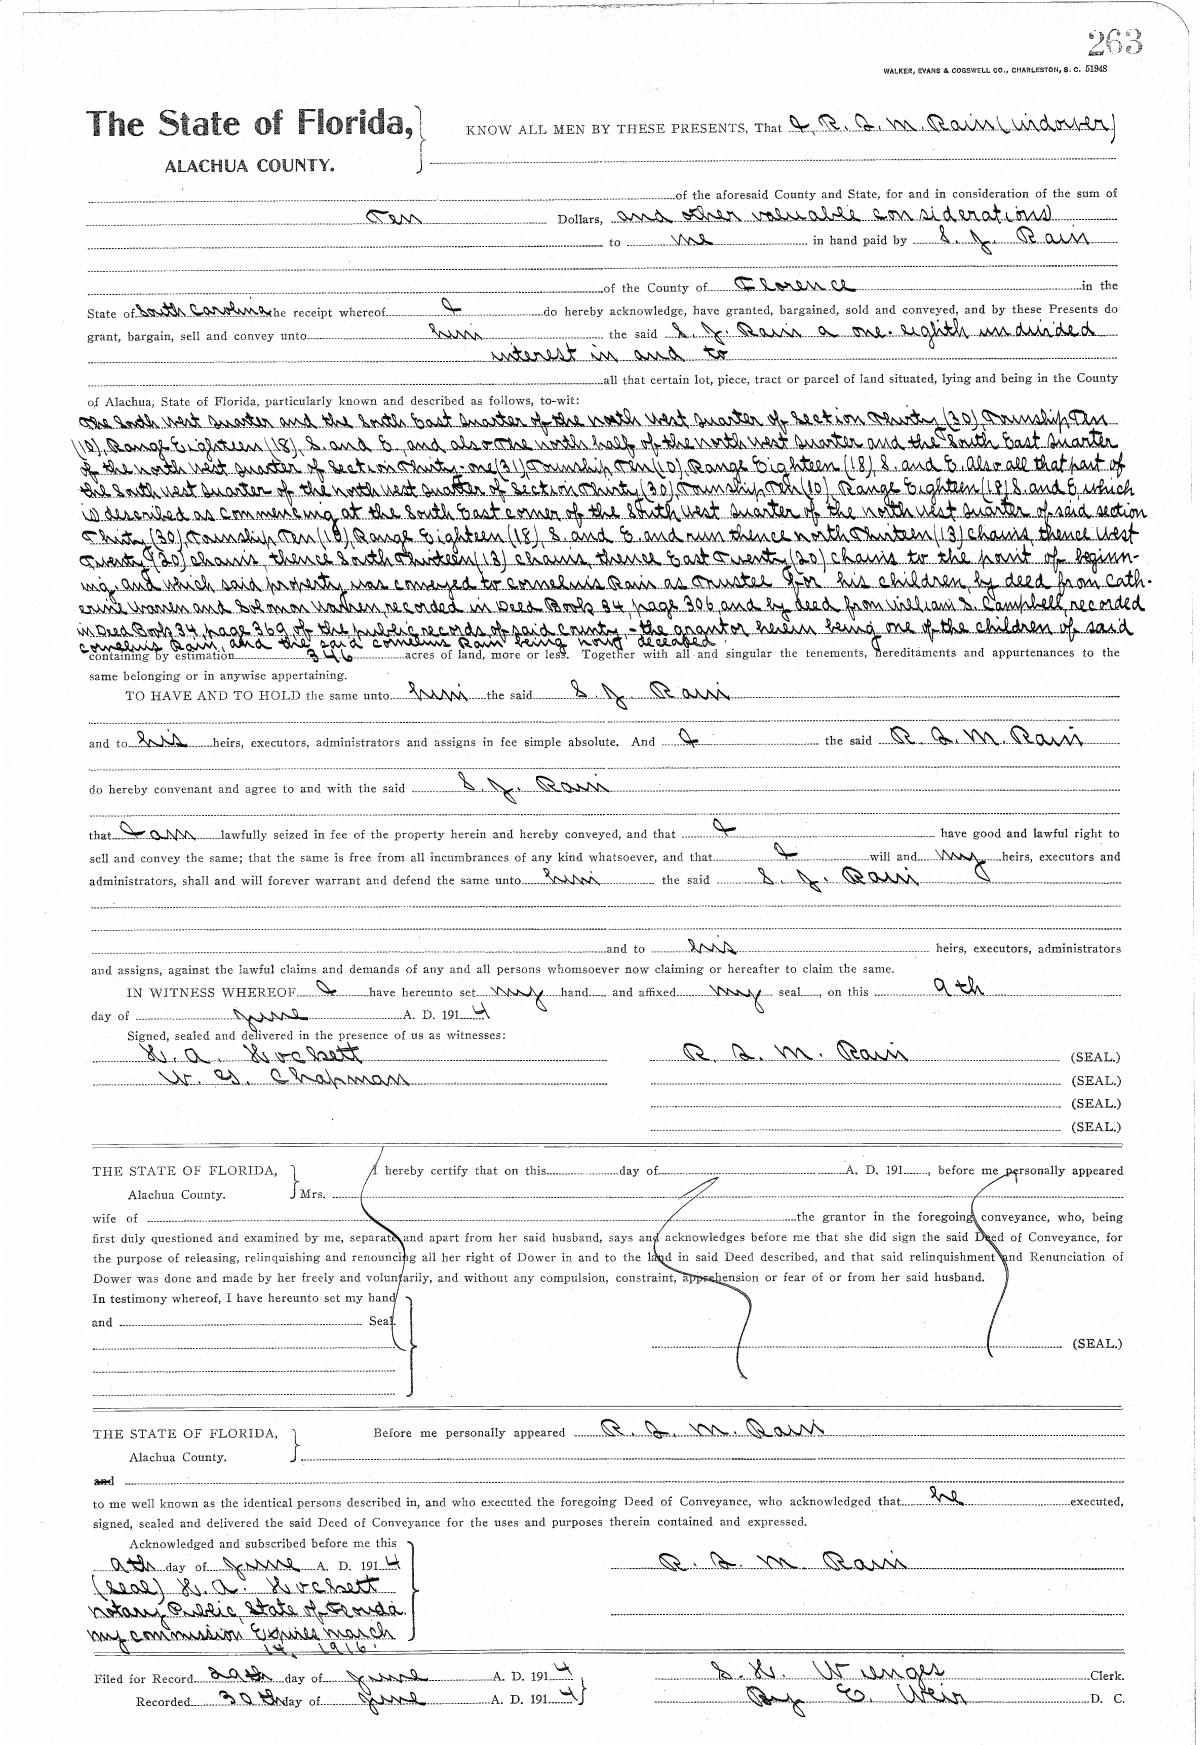 263
WALKER, EVANS & COGSWELL CO., CHARLESTON, S. C. 51948
The State of Florida,
ALACHUA COUNTY.
KNOW ALL MEN BY THESE PRESENTS, That I, R. I. M. Rain (widower)
of the aforesaid County and State, for and in consideration of the sum of
Ten Dollars, and other valuable considerations
to me in hand paid by S. J. Rain
of the County of Florence in the
State of South Carolina the receipt whereof I do hereby acknowledge, have granted, bargained, sold and conveyed, and by these Presents do
grant, bargain, sell and convey unto him the said S. J. Rain a one-eighth undivided
interest in and to
all that certain lot, piece, tract or parcel of land situated, lying and being in the County
of Alachua, State of Florida, particularly known and described as follows, to-wit:
The South West Quarter and the South East Quarter of the north West Quarter of Section Thirty (30), Township Ten
(10), Range Eighteen (18), S. and E. and also The north half of the north West Quarter and the South East Quarter
of the north West Quarter of Section Thirty-one (31) Township Ten (10), Range Eighteen (18), S. and E. Also all that part of
the South West Quarter of the north West Quarter of Section Thirty (30), Township Ten (10), Range Eighteen (18) S. and E. which
is described as commencing at the South East corner of the South West Quarter of the north West Quarter of said section
Thirty (30), Township Ten (10), Range Eighteen (18), S. and E. and run thence north Thirteen (13) chains, thence West
Twenty (20) chains, thence South Thirteen (13) chains, thence East Twenty (20) chains to the point of beginn-
ing, and which said property was conveyed to Cornelius Rain as Trustee for his children, by deed from Cath-
erine Warren and Solomon Warren, recorded in Deed Book 34, page 306, and by deed from William S. Campbell, recorded
in Deed Book 34, page 369, of the public records of said county, - the grantor herein being one of the children of said
Cornelius Rain, and the said Cornelius Rain being now deceased.
containing by estimation 346 acres of land, more or less. Together with all and singular the tenements, hereditaments and appurtenances to the
same belonging or in anywise appertaining.
TO HAVE AND TO HOLD the same unto him the said S. J. Rain
and to his heirs, executors, administrators and assigns in fee simple absolute. And I the said R. I. M. Rain
do hereby convenant and agree to and with the said S. J. Rain
that I am lawfully seized in fee of the property herein and hereby conveyed, and that I have good and lawful right to
sell and convey the same; that the same is free from all incumbrances of any kind whatsoever, and that I will and my heirs, executors and
administrators, shall and will forever warrant and defend the same unto him the said S. J. Rain
and to his heirs, executors, administrators
and assigns, against the lawful claims and demands of any and all persons whomsoever now claiming or hereafter to claim the same.
IN WITNESS WHEREOF I have hereunto set my hand and affixed my seal, on this 9th
day of June A. D. 1914
Signed, sealed and delivered in the presence of us as witnesses:
H. A. Hockett R. I. M. Rain (SEAL.)
W. G. Chapman (SEAL.)
(SEAL.)
(SEAL.)
THE STATE OF FLORIDA, I hereby certify that on this day of A. D. 191 , before me personally appeared
Alachua County. Mrs.
wife of the grantor in the foregoing conveyance, who, being
first duly questioned and examined by me, separate and apart from her said husband, says and acknowledges before me that she did sign the said Deed of Conveyance, for
the purpose of releasing, relinquishing and renouncing all her right of Dower in and to the land in said Deed described, and that said relinquishment and Renunciation of
Dower was done and made by her freely and voluntarily, and without any compulsion, constraint, apprehension or fear of or from her said husband.
In testimony whereof, I have hereunto set my hand
and Seal
(SEAL.)
THE STATE OF FLORIDA, Before me personally appeared R. I. M. Rain
Alachua County.
and
to me well known as the identical persons described in, and who executed the foregoing Deed of Conveyance, who acknowledged that he executed,
signed, sealed and delivered the said Deed of Conveyance for the uses and purposes therein contained and expressed.
Acknowledged and subscribed before me this
9th day of June A. D. 1914 R. I. M. Rain
(Seal) H. A. Hockett
Notary Public, State of Florida
my commission Expires march
14, 1916.
Filed for Record 29th day of June A. D. 1914 S. H. Wienges Clerk.
Recorded 30th day of June A. D. 1914 By E. Weir D. C.